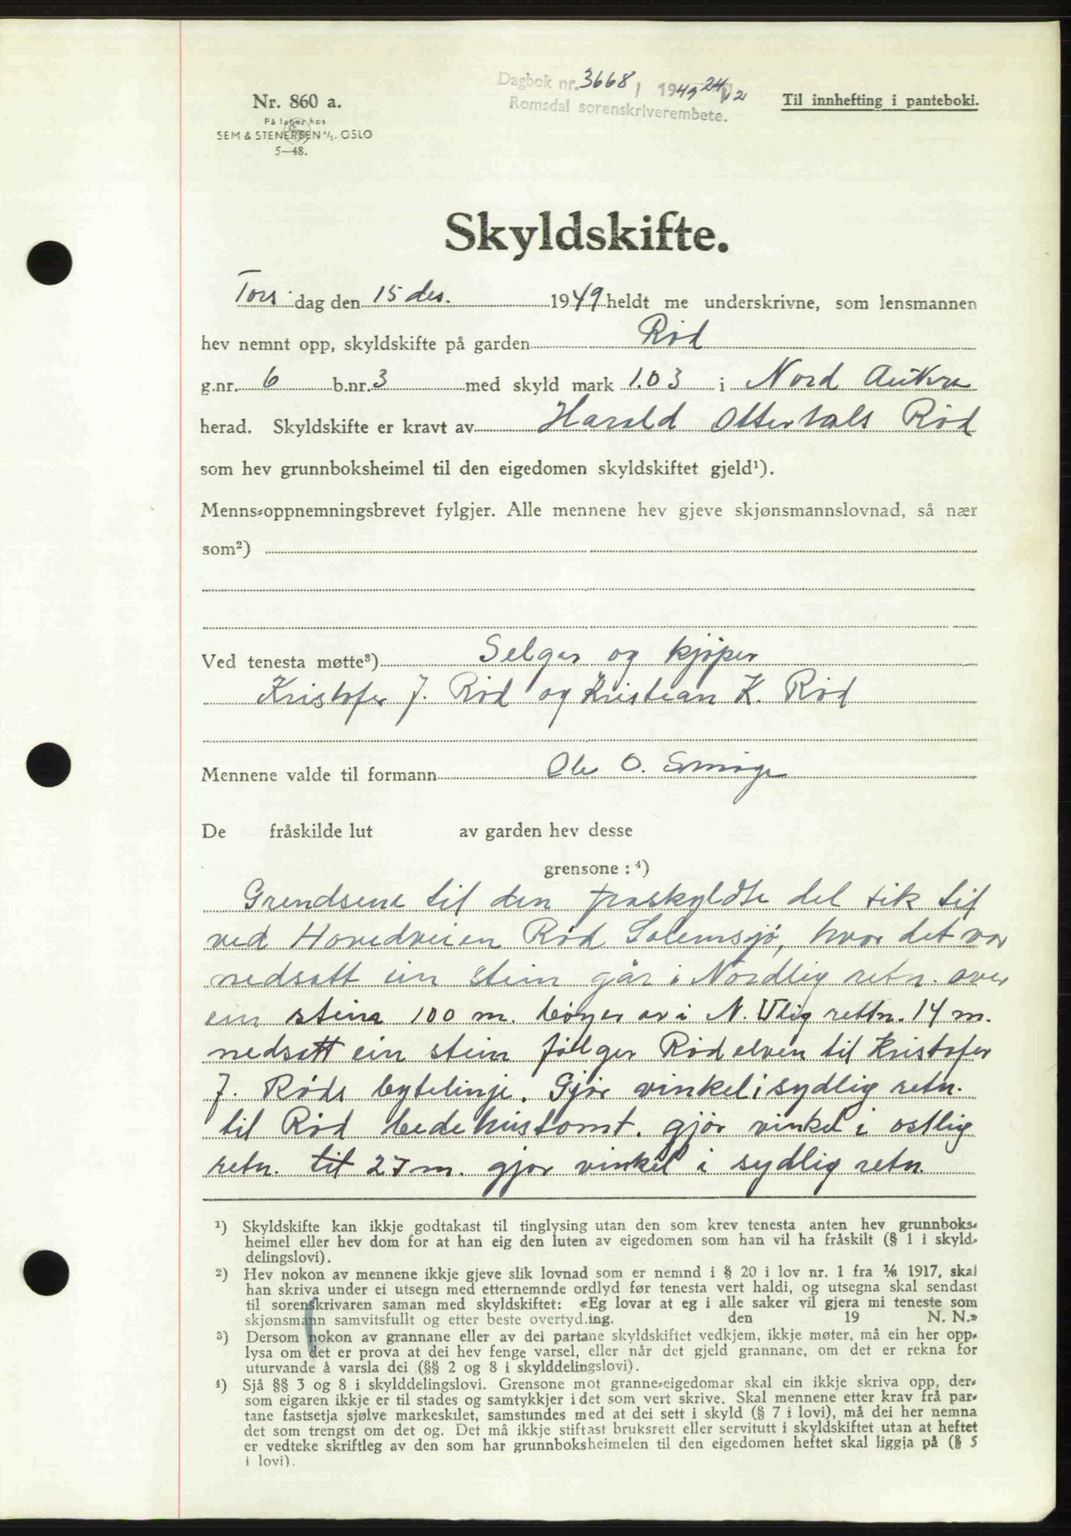 Dagbok nr. 3668, 1949 24/12
Romsdal sorenskriverembete.
Nr. 860 a.
På lager hos
SEM & STENERSEN A/S. OSLO
5—48.
Til innhefting i panteboki.
Skyldskifte.
Tors dag den 15 des. 1949 heldt me underskrivne, som lensmannen
hev nemnt opp, skyldskifte på garden Rød
g.nr. 6 b.nr. 3 med skyld mark 1.03 i Nord Aukra
herad. Skyldskifte er kravt av Harald Ottertals Rød
som hev grunnboksheimel til den eigedomen skyldskiftet gjeld¹).
Menns-oppnemningsbrevet fylgjer. Alle mennene hev gjeve skjønsmannslovnad, så nær
som²)
Ved tenesta møtte³) Selger og kjøper
Kristofer J. Rød og Kristian K. Rød
Mennene valde til formann Ole O. Småge
De fråskilde lut av garden hev desse
grensone : ⁴)
Grendsene til den fraskyldte del tik til
ved Hovedveien Rød Solemsjø, hvor det var
nedsatt ein stein går i Nordlig retn. over
ein stein 100 m. bøyer av i N. Vlig rettn. 14 m.
nedsatt ein stein følger Rødelven til Kristofer
J. Røds bytelinje. Gjør vinkel i sydlig retn.
til Rød bedehustomt. gjør vinkel i ostlig
retn. til 27 m. gjør vinkel i sydlig retn.
¹) Skyldskifte kan ikkje godtakast til tinglysing utan den som krev tenesta anten hev grunnboks-
heimel eller hev dom for at han eig den luten av eigedomen som han vil ha fråskilt (§ 1 i skyld-
delingslovi).
²) Hev nokon av mennene ikkje gjeve slik lovnad som er nemnd i § 20 i lov nr. 1 fra 1/6 1917, skal
han skriva under ei utsegn med etternemnde ordlyd før tenesta vert haldi, og utsegna skal sendast
til sorenskrivaren saman med skyldskiftet: «Eg lovar at eg i alle saker vil gjera mi teneste som
skjønsmann samvitsfullt og etter beste overtyd.ing. den 19 N. N.»
³) Dersom nokon av grannane eller av dei partane skyldskiftet vedkjem, ikkje møter, må ein her opp-
lysa om det er prova at dei hev fenge varsel, eller når det gjeld grannane, om det er rekna for
uturvande å varsla dei (§§ 2 og 8 i skylddelingslovi).
⁴) Sjå §§ 3 og 8 i skylddelingslovi. Grensone mot granne-eigedomar skal ein ikkje skriva opp, der-
som eigaren ikkje er til stades og samtykkjer i det som vert skrive. Skal mennene etter krav frå par-
tane fastsetja sjølve markeskilet, samstundes med at dei sett i skyld (§ 7 i lovi), må dei her nemna
det som trengst om det og. Det må ikkje stiftast bruksrett eller servitutt i skyldskiftet utan at heftet
er vedteke skriftleg av den som har grunnboksheimelen til den eigedomen heftet skal liggja på (§ 5
i lovi).